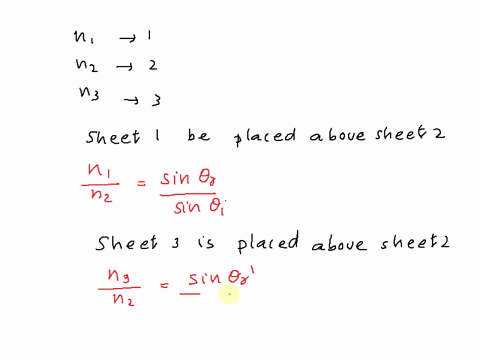 n₁ → 1
n₂ → 2
n₃ → 3
Sheet 1 be placed above sheet 2
n₁/n₂ = sin θᵣ/sin θᵢ
Sheet 3 is placed above sheet 2
n₃/n₂ = sin θᵣ'